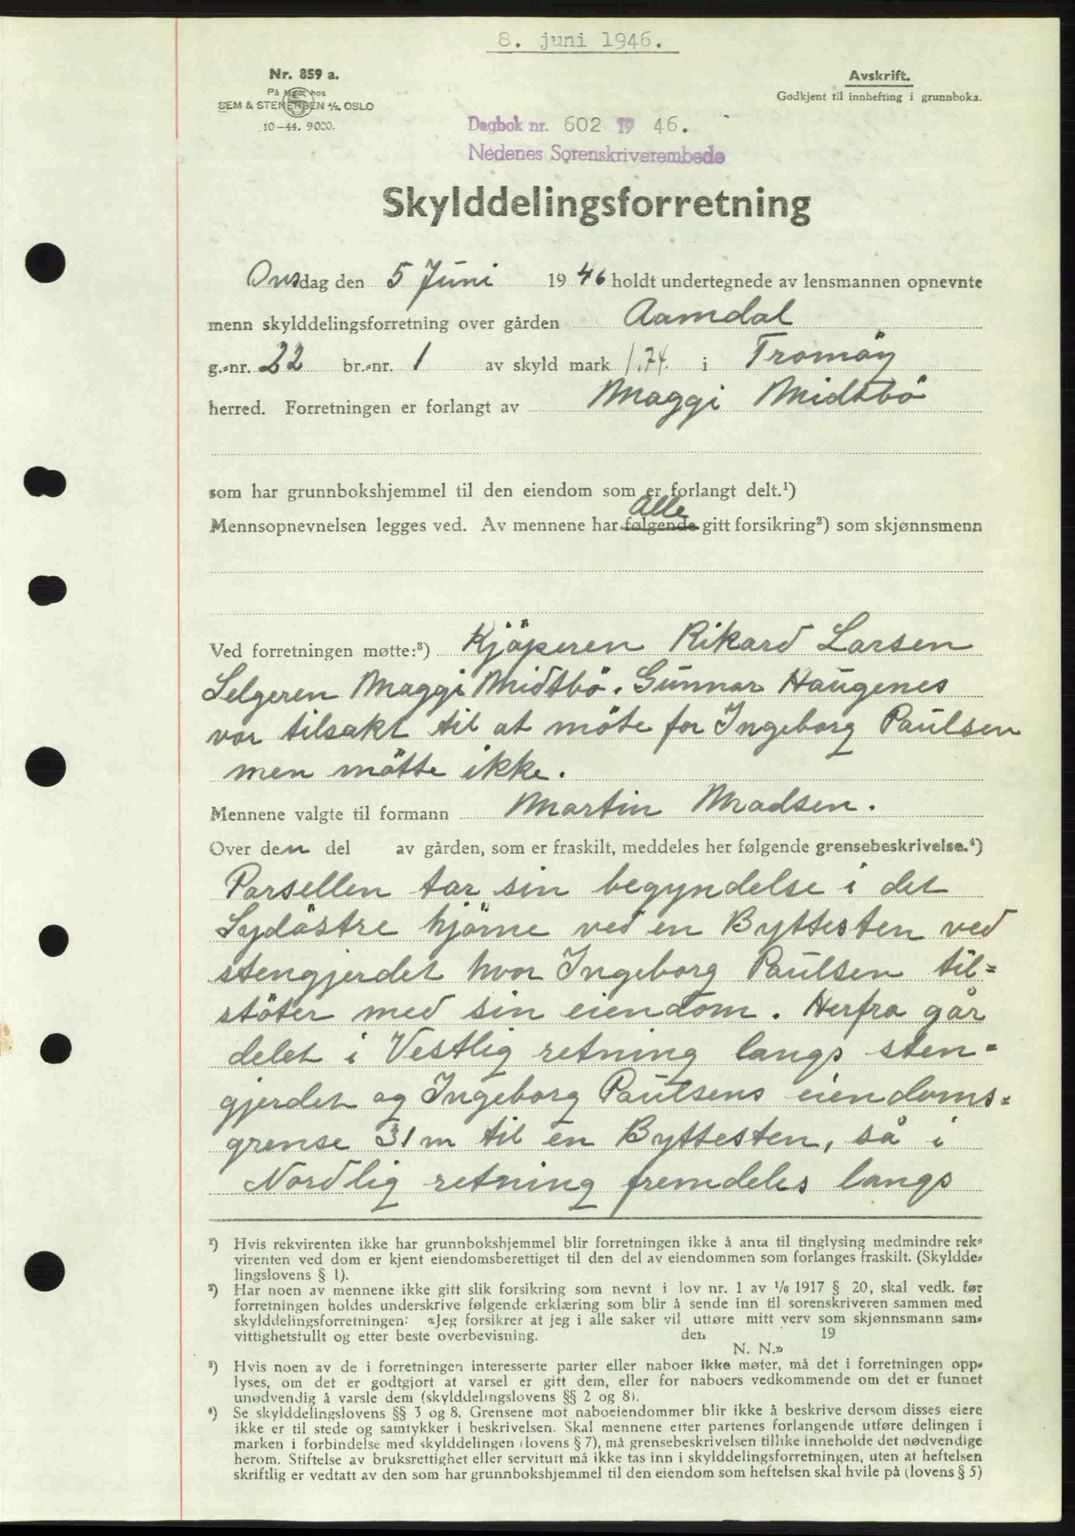 8. juni 1946.
Nr. 859 a.
Avskrift.
På lager hos
SEM & STENERSEN A/S, OSLO
Godkjent til innhefting i grunnboka.
10-44. 9000.
Dagbok nr. 602 19 46.
Nedenes Sorenskriverembede
Skylddelingsforretning
Onsdag den 5 Juni 1946 holdt undertegnede av lensmannen opnevnte
menn skylddelingsforretning over gården Aamdal
g.-nr. 22 br.-nr. 1 av skyld mark 1.74. i Tromöy
herred. Forretningen er forlangt av Maggi Midtbö
som har grunnbokshjemmel til den eiendom som er forlangt delt.¹)
Alle
Mennsopnevnelsen legges ved. Av mennene har følgende gitt forsikring²) som skjønnsmenn
Ved forretningen møtte:³) Kjöperen Rikard Larsen
Selgeren Maggi Midtbö. Gunnar Haugenes
var tilsakt til at möte for Ingeborg Paulsen
men mötte ikke.
Mennene valgte til formann Martin Madsen.
Over den del av gården, som er fraskilt, meddeles her følgende grensebeskrivelse.⁴)
Parsellen tar sin begyndelse i det
Sydöstre hjörne ved en Byttesten ved
stengjerdet hvor Ingeborg Paulsen til=
stöter med sin eiendom. Herfra går
delet i Vestlig retning langs sten=
gjerdet og Ingeborg Paulsens eiendoms=
grense 31 m til en Byttesten, så i
Nordlig retning fremdeles langs
¹) Hvis rekvirenten ikke har grunnbokshjemmel blir forretningen ikke å anta til tinglysing medmindre rek-
virenten ved dom er kjent eiendomsberettiget til den del av eiendommen som forlanges fraskilt. (Skyldde-
lingslovens § 1).
²) Har noen av mennene ikke gitt slik forsikring som nevnt i lov nr. 1 av 1/6 1917 § 20, skal vedk. før
forretningen holdes underskrive følgende erklæring som blir å sende inn til sorenskriveren sammen med
skylddelingsforretningen: «Jeg forsikrer at jeg i alle saker vil utføre mitt verv som skjønnsmann sam-
vittighetsfullt og etter beste overbevisning. den 19
N. N.»
³) Hvis noen av de i forretningen interesserte parter eller naboer ikke møter, må det i forretningen opp-
lyses, om det er godtgjort at varsel er gitt dem, eller for naboers vedkommende om det er funnet
unødvendig å varsle dem (skylddelingslovens §§ 2 og 8).
⁴) Se skylddelingslovens §§ 3 og 8. Grensene mot naboeiendommer blir ikke å beskrive dersom disses eiere
ikke er til stede og samtykker i beskrivelsen. Skal mennene etter partenes forlangende utføre delingen i
marken i forbindelse med skylddelingen (lovens § 7), må grensebeskrivelsen tillike inneholde det nødvendige
herom. Stiftelse av bruksrettighet eller servitutt må ikke tas inn i skylddelingsforretningen, uten at heftelsen
skriftlig er vedtatt av den som har grunnbokshjemmel til den eiendom som heftelsen skal hvile på (lovens § 5)